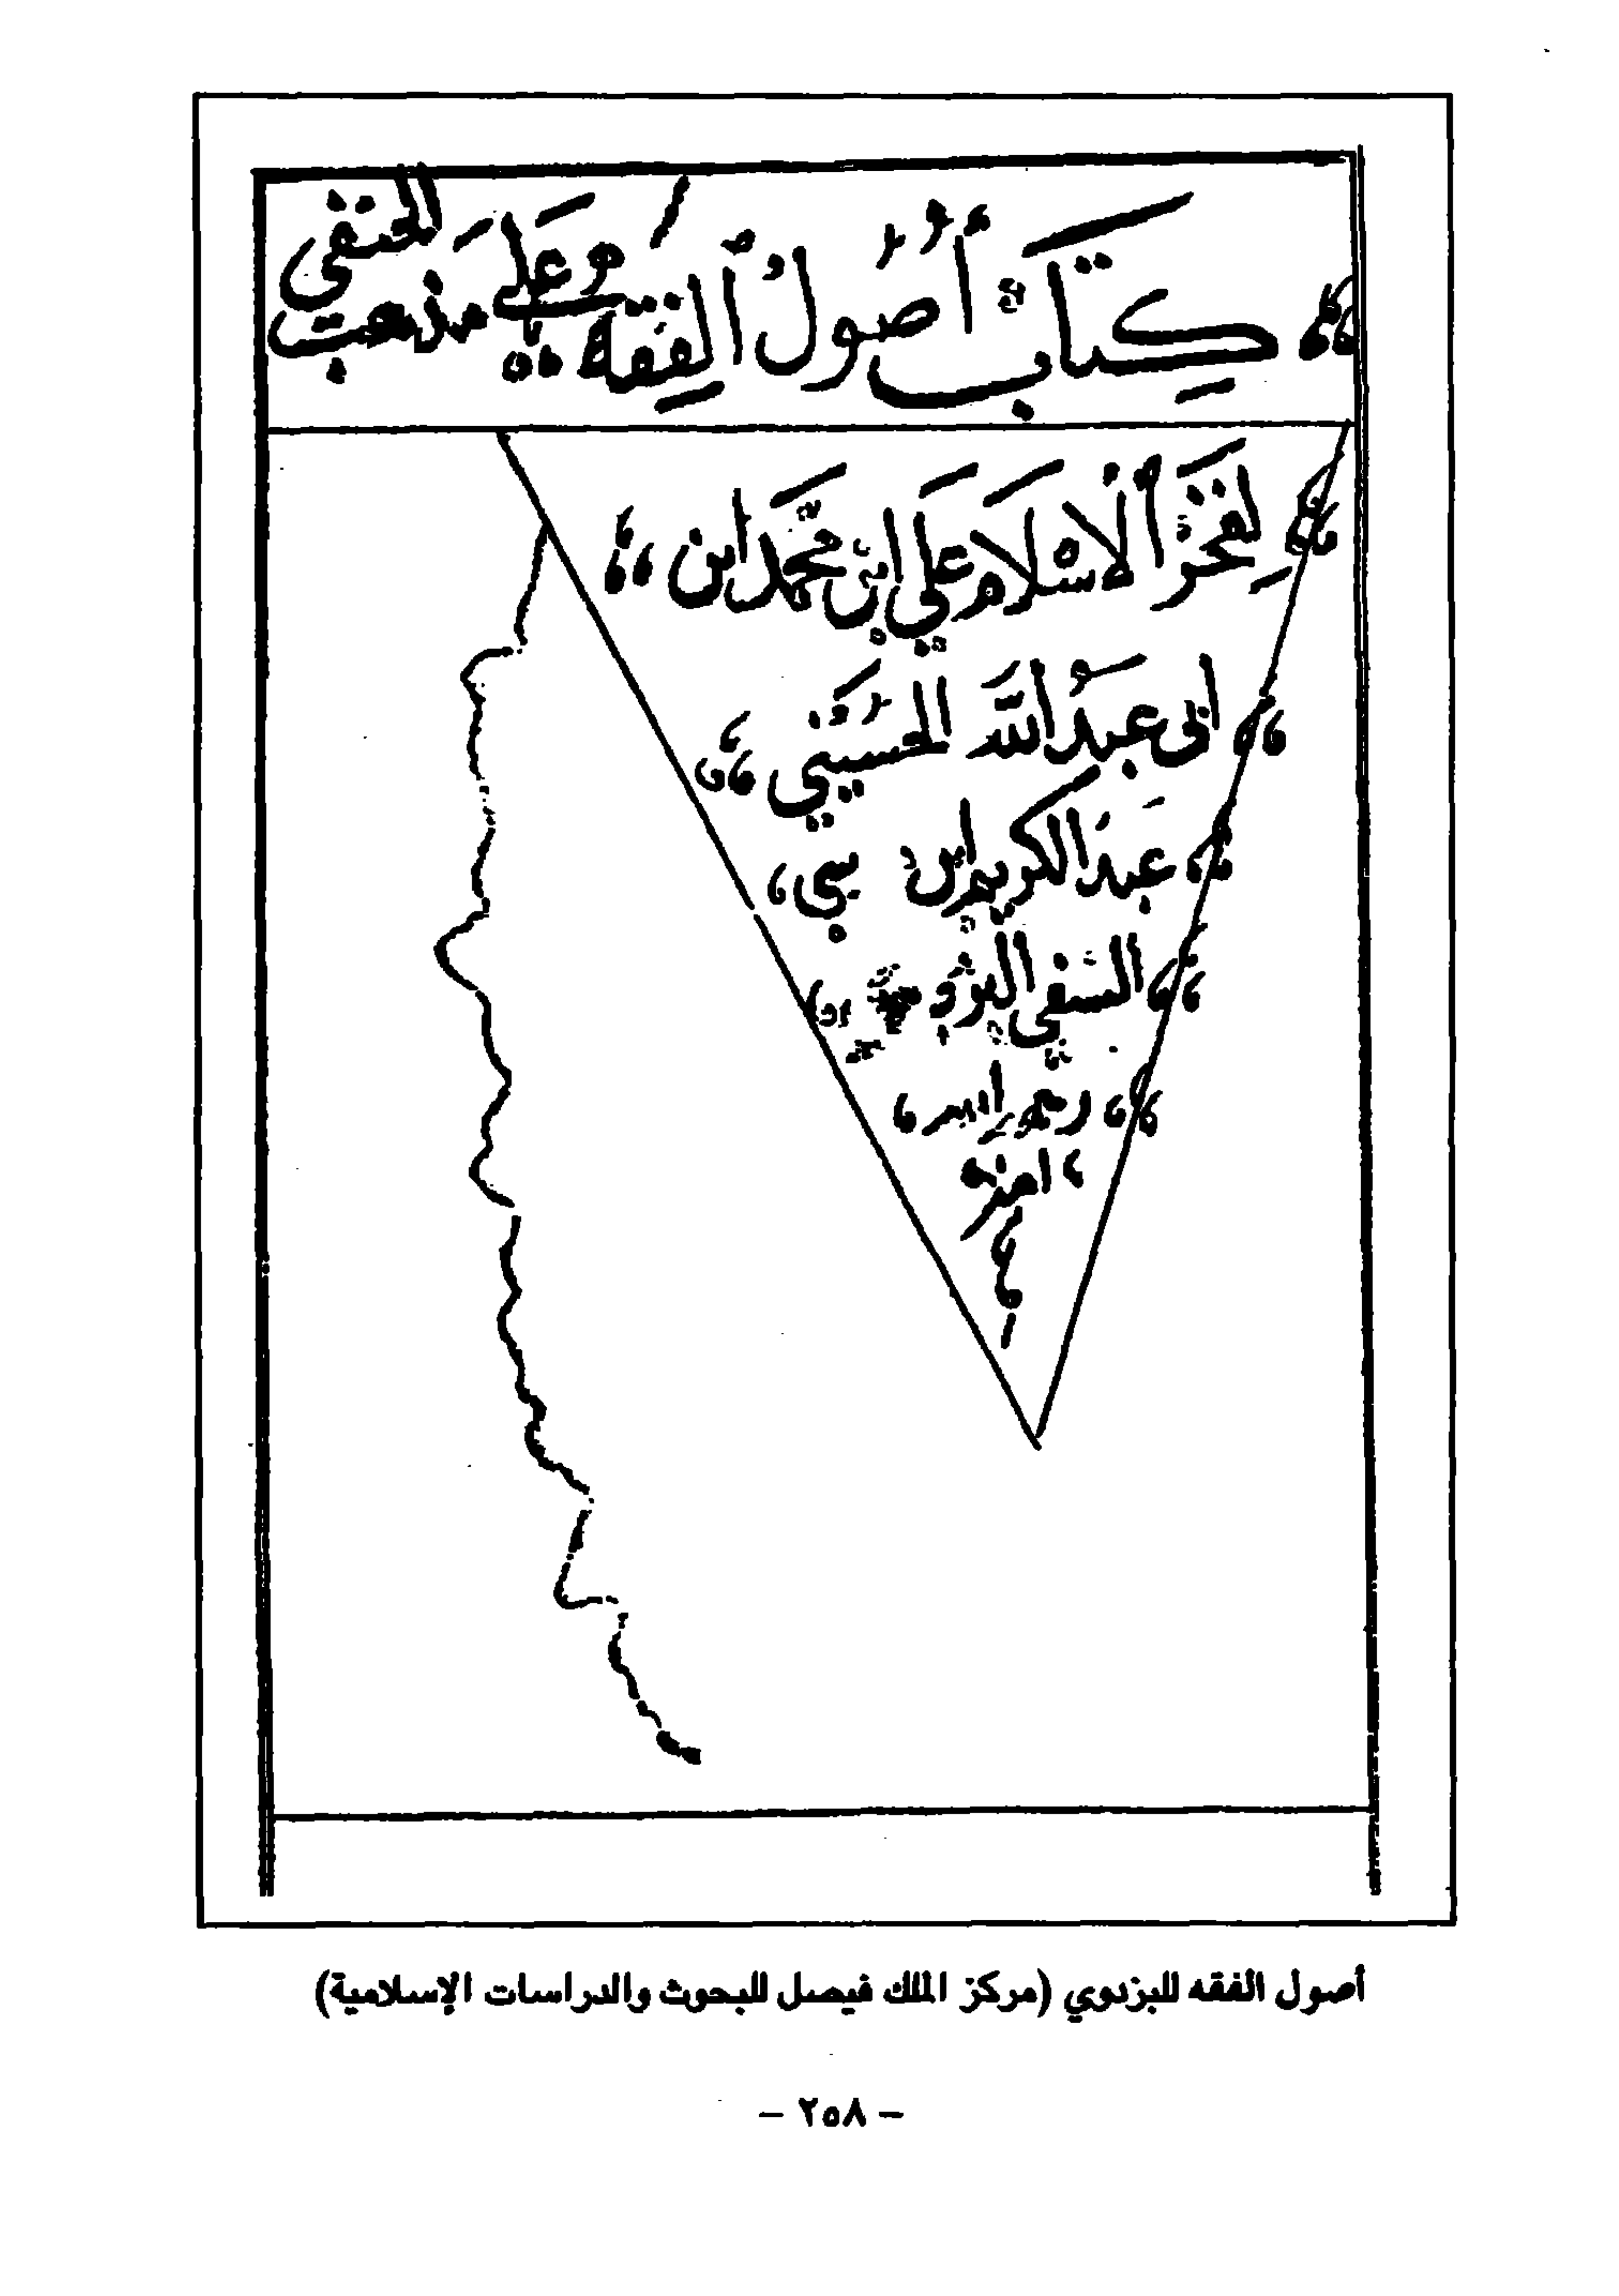 كِتَابُ أُصُولُ الفِقْه وَعَلَى مذهب الحنفي
لِفَخْرُ الْاِسْلَام علي ابن مُحَمَّد ابن
ابى عبدُ الله الحسيني
عبدَ الكريم ابن
النسفي البزدو
رحمه الله
امين
أصول الفقه للبزدوي (مركز الملك فيصل للبحوث والدراسات الإسلامية)
- ٢٥٨ -